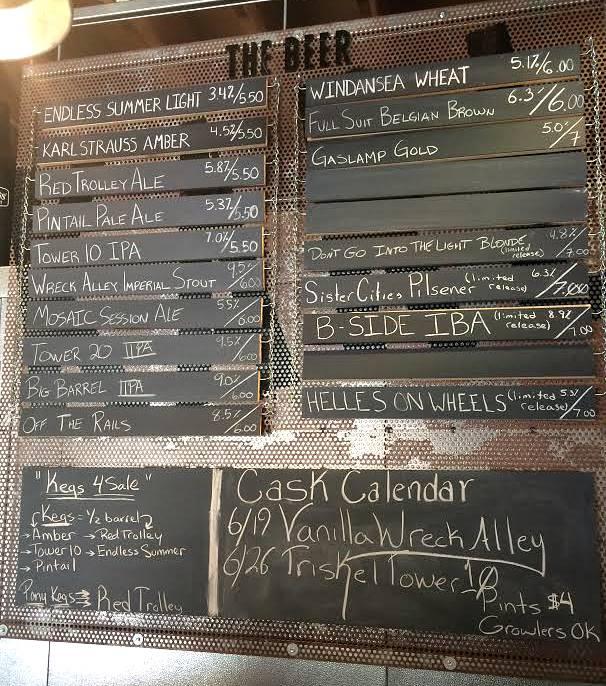 THE BEER
ENDLESS SUMMER LIGHT 3.4%/5.50
KARL STRAUSS AMBER 4.5%/5.50
RED TROLLEY ALE 5.8%/5.50
PINTAIL PALE ALE 5.3%/5.50
TOWER 10 IPA 7.0%/5.50
WRECK ALLEY IMPERIAL STOUT 9.5%/6.00
MOSAIC SESSION ALE 5.5%/6.00
TOWER 20 IIPA 9.5%/6.00
BIG BARREL IIPA 9.0%/6.00
OFF THE RAILS 8.5%/6.00
WINDANSEA WHEAT 5.1%/6.00
FULL SUIT BELGIAN BROWN 6.3%/6.00
GASLAMP GOLD 5.0%/7
DONT GO INTO THE LIGHT BLONDE (limited release) 4.8%/7.00
Sister Cities Pilsener (limited release) 6.3%/
B-SIDE IBA (limited release) 8.9%/7.00
HELLES ON WHEELS (limited release) 5.5%/7.00
"Kegs 4 Sale"
Kegs = 1/2 barrel
→Amber →Red Trolley
→Tower 10 →Endless Summer
→Pintail
Pony Kegs Red Trolley
Cask Calendar
6/19 Vanilla Wreck Alley
6/26 Triskel Tower 10
Pints $4
Growlers OK